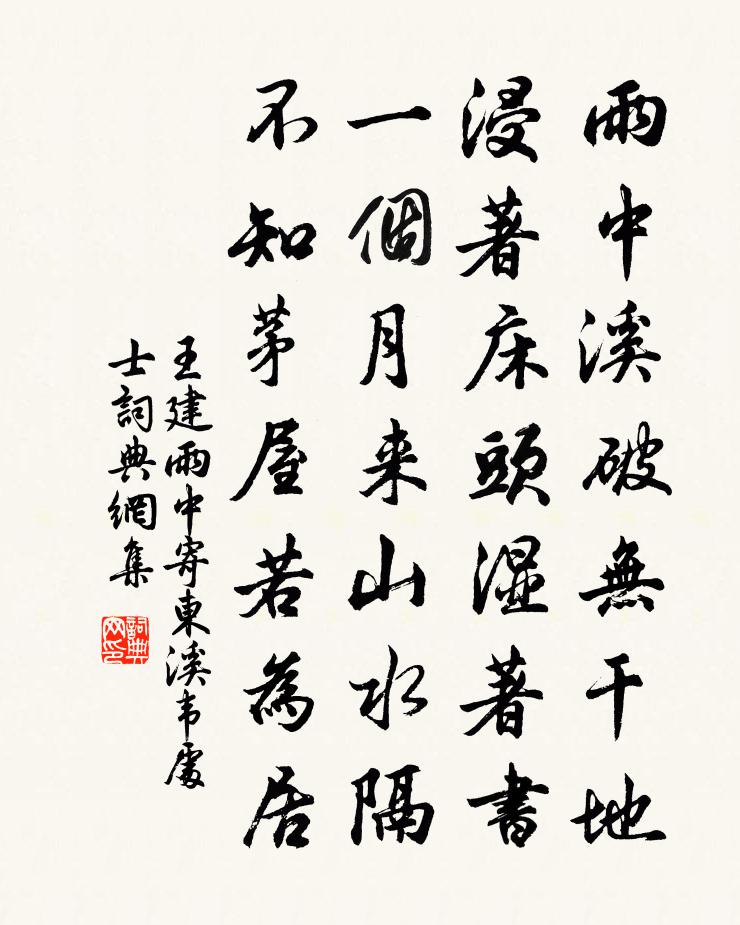 雨中溪破無干地
浸著床頭濕著書
一個月来山水隔
不知茅屋若為居
王建雨中寄東溪韦處
士詞典網集
詞典网印